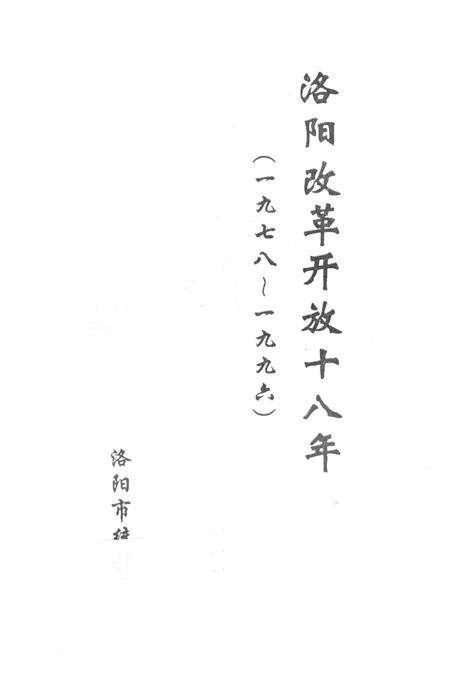 洛阳改革开放十八年
(一九七八～一九九六)
洛阳市